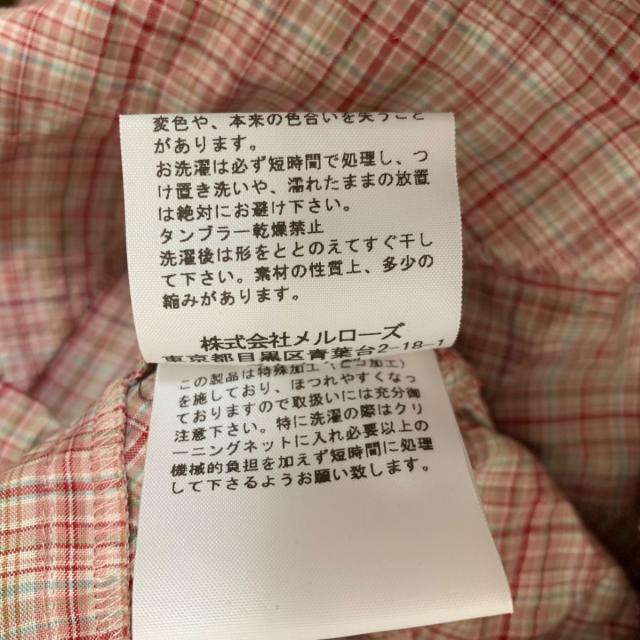 変色や、本来の色合いを失うこと
があります。
お洗濯は必ず短時間で処理し、つ
け置き洗いや、濡れたままの放置
は絶対にお避け下さい。
タンブラー乾燥禁止
洗濯後は形をととのえてすぐ干し
て下さい。素材の性質上、多少の
縮みがあります。
株式会社メルローズ
東京都目黒区青葉台2-18-1
この製品は特殊加工（ピコ加工）
を施しており、ほつれやすくなっ
ておりますので取扱いには充分御
注意下さい。特に洗濯の際はクリ
ーニングネットに入れ必要以上の
機械的負担を加えず短時間に処理
して下さるようお願い致します。